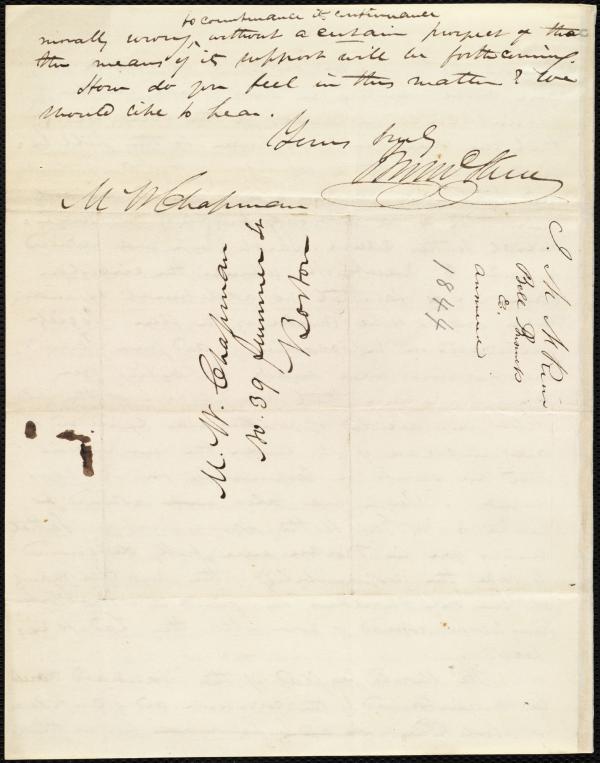 to countenance its continuance
morally wrong, without a certain prospect of that
the means of its support will be forthcoming.
How do you feel in this matter? We
would like to hear.
Yours truly
J M McKim
M W Chapman
M. W. Chapman
No. 39 Summer St
Boston
J. M. McKim
&c.
answered
1844